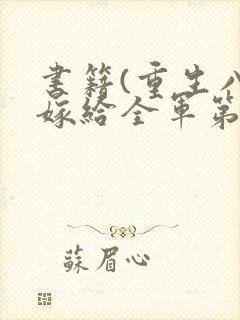 書籍(重生八
嫁給全軍第
蘇眉心